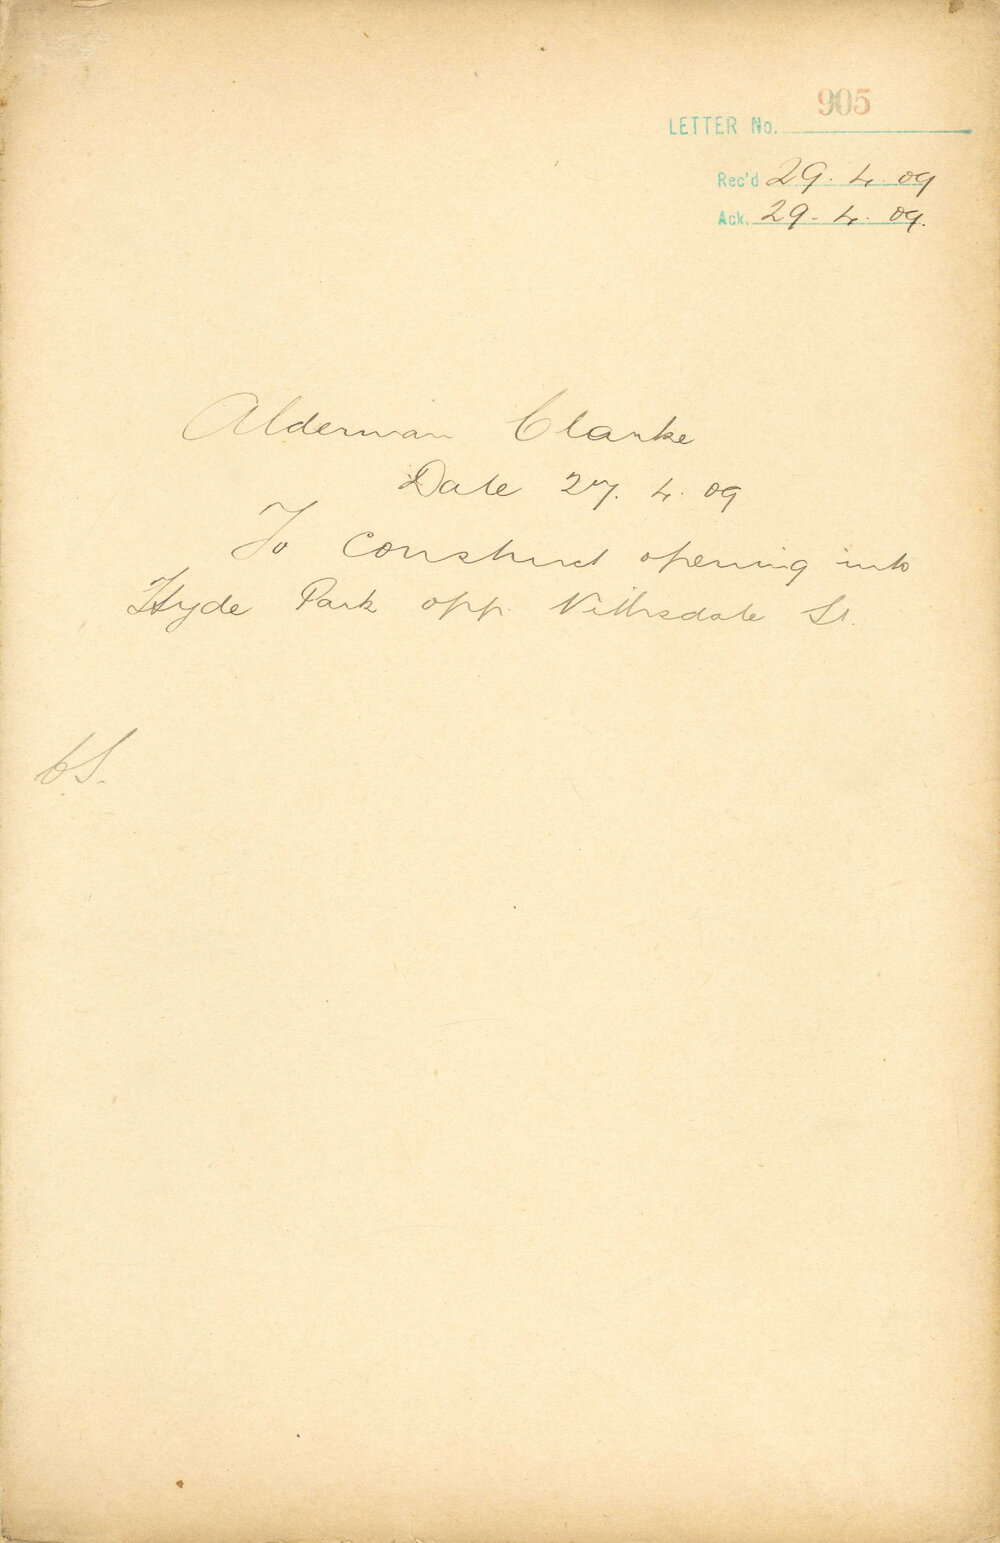 905
LETTER No.
Rec'd 29. 4. 09
Ack. 29. 4. 09.
Alderman Clarke
Date 27. 4. 09
To construct opening into
Hyde Park opp. Nithsdale St.